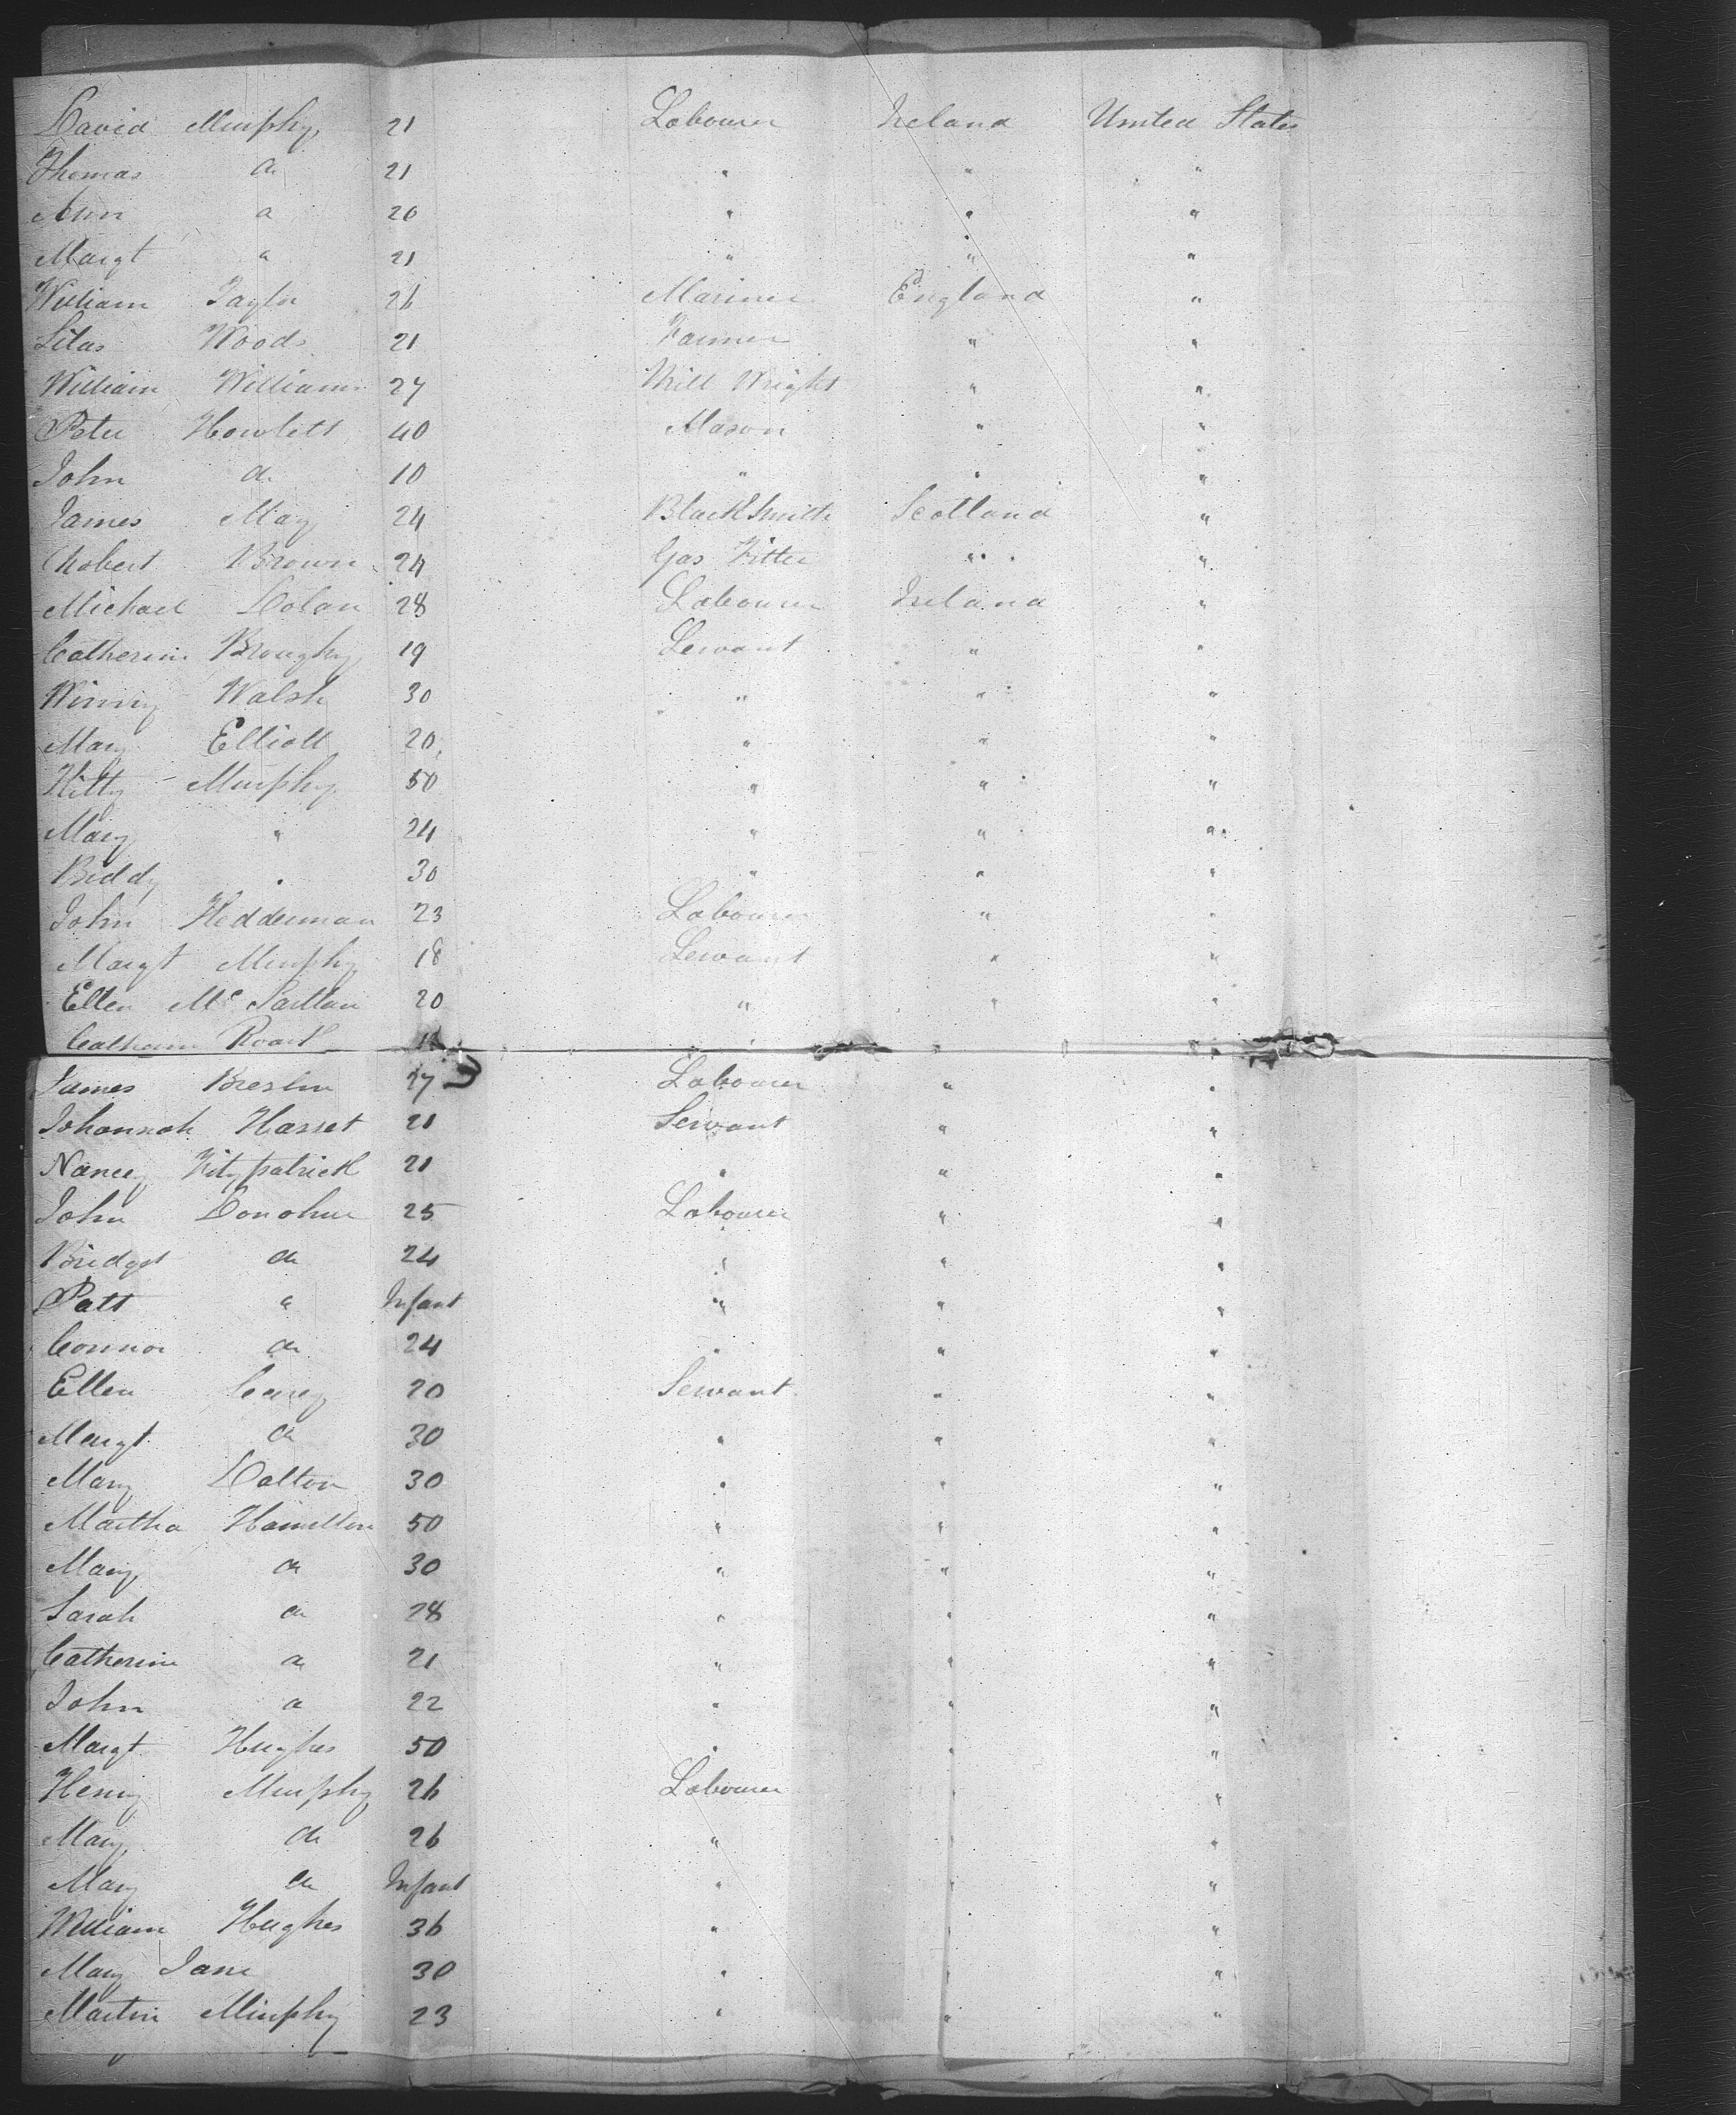 David Murphy 21 Labourer Ireland United States
Thomas do 21 " " "
Ann do 20 " " "
Margt do 21 " " "
William Taylor 26 Mariner England "
Silas Woods 21 Farmer " "
William Williams 27 Mill Wright " "
Peter Howlett 40 Mason " "
John do 10 " " "
James May 24 BlackSmith Scotland "
Robert Brown 24 Gas Fitter " "
Michael Dolan 28 Labourer Ireland "
Catherine Broughy 19 Servant " "
Winny Walsh 30 " " "
Mary Elliott 20 " " "
Kitty Murphy 50 " " "
Mary " 24 " " "
Biddy " 30 " " "
John Hedderman 23 Labourer " "
Margt Murphy 18 Servant " "
Ellen Mc Partlan 20 " " "
Catharine Roark "
James Breslin 27 Labourer " "
Johannah Hasset 21 Servant " "
Nancy Fitzpatrick 21 " " "
John Donohue 25 Labourer " "
Bridget do 24 " " "
Patt " Infant " " "
Connor do 24 " " "
Ellen Carey 20 Servant " "
Margt do 30 " " "
Mary Dalton 30 " " "
Martha Hamilton 50 " " "
Mary do 30 " " "
Sarah do 28 " " "
Catherine do 21 " " "
John do 22 " " "
Margt Hughes 50 " " "
Henry Murphy 26 Labourer " "
Mary do 26 " " "
Mary do Infant " " "
William Hughes 36 " " "
Mary Jane 30 " " "
Martin Murphy 23 " " "